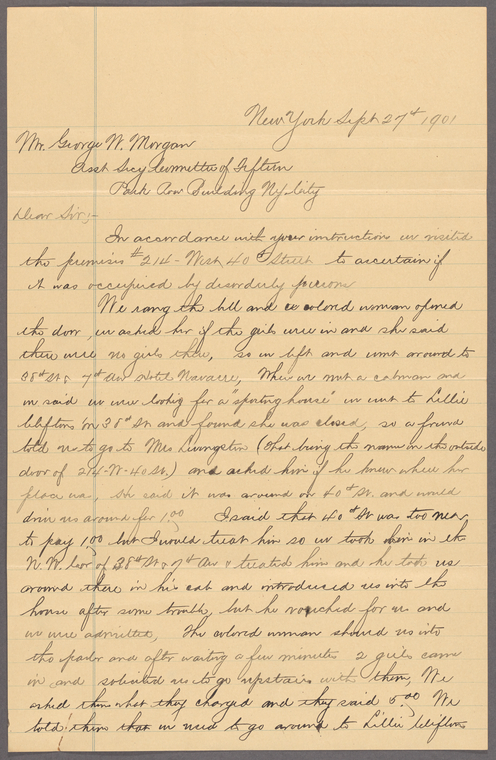 New York Sept 27th 1901
Mr. George W. Morgan
Asst Secy Committee of Fifteen
Park Row Building Ny City
Dear Sir;-
In accordance with your instruction we visited
the premises # 214 - West 40th Street to ascertain if
it was occupied by disorderly persons
We rang the bell and a colored woman opened
the door, we asked her if the girls were in and she said
there were no girls there, so we left and went around to
38th St & 7th Av Hotel Navarre, When we met a cabman and
we said we were lookig for a "sporting house" we went to Lillie
Cliftons on 38th St and found she was closed, so a friend
told us to go to Mrs Livingston (that being the name on the outside
door of 214-W-40 St.) and asked him if he knew where her
place was, He said it was around on 40th St. and would
drive us around for 1.00 I said that 40th St was too near
to pay 1.00 but I would treat him so we took him in the
N.W. Cor of 38th St & 7th Av & treated him and he took us
around there in his cab and introduced us into the
house after some trouble, but he vouched for us and
we were admitted, The colored woman showed us into
the parlor and after waiting a few minutes 2 girls came
in and solicited us to go upstairs with them, We
asked them what they charged and they said 5.00 We
told them that we used to go around to Lillie Cliftons